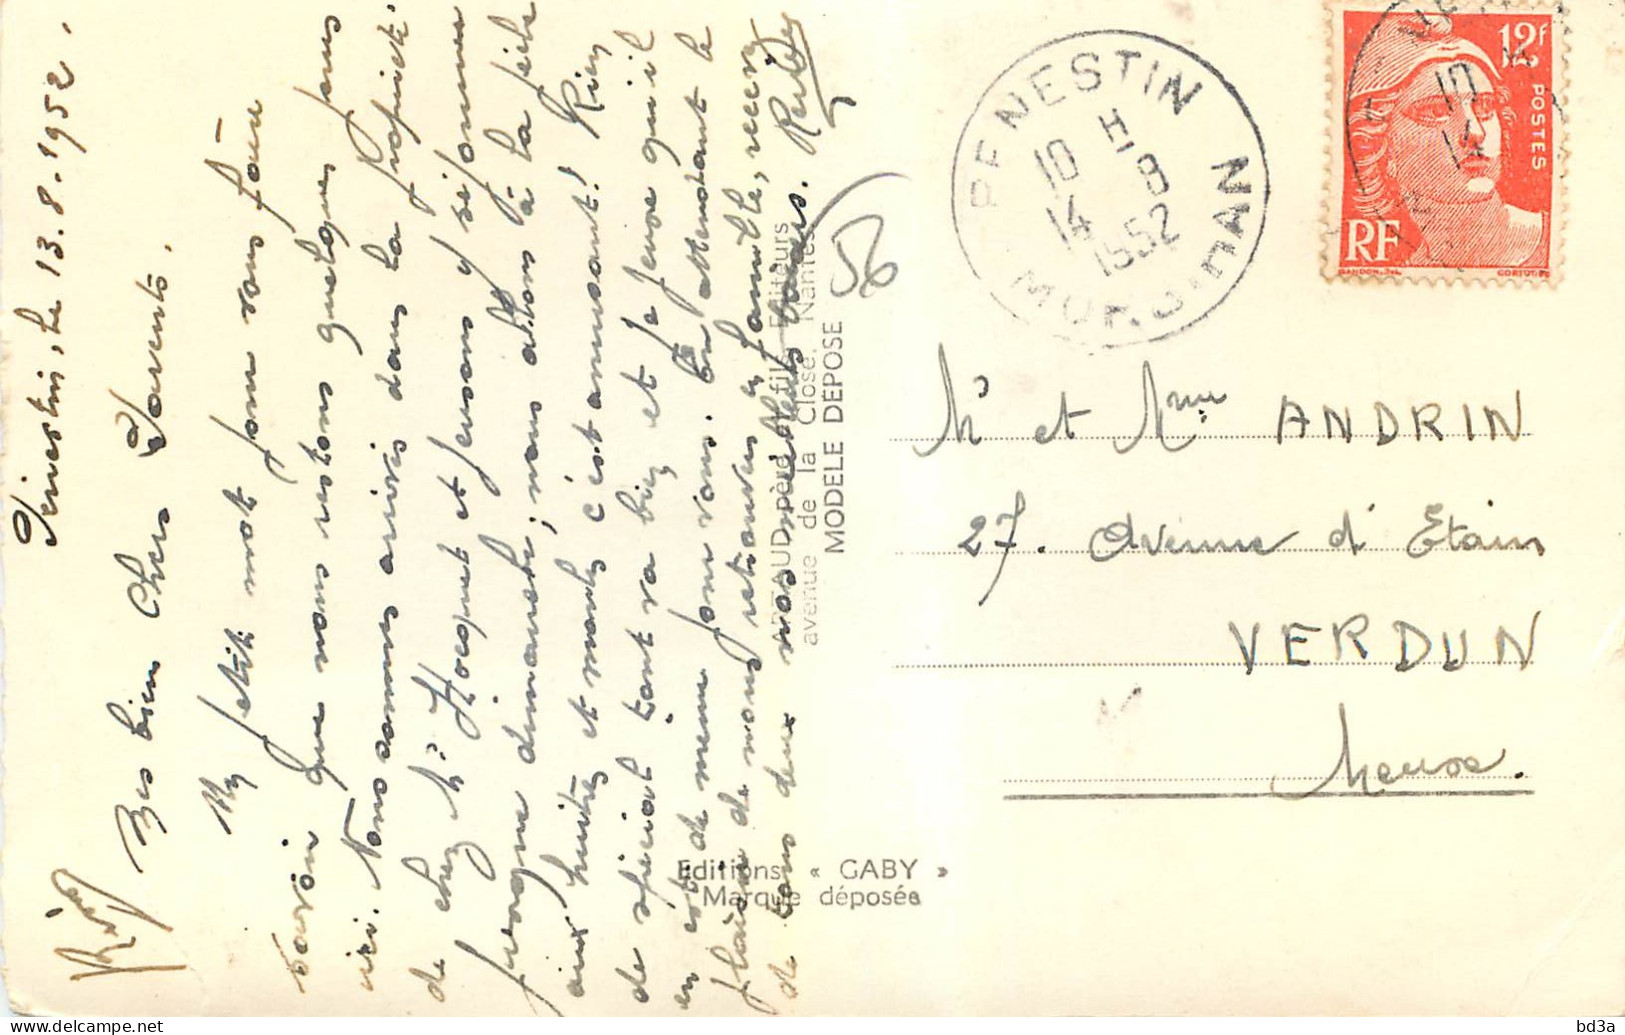 Pénestin, le 13.8.1952.
Mes bien Chers Parents.
Un petit mot pour vous faire
savoir que nous restons quelques jours
ici. Nous sommes arrivés dans la propriété
de chez Mr Hocquet et pensons y séjourner
jusque dimanche ; nous allons à la pêche
aux huîtres et moules c'est amusant! Rien
de spécial tout va bien et je pense qu'il
en est de même pour vous. En attendant le
plaisir de nous retrouver en famille, recevez
de tous deux nos meilleurs baisers.
56
ARTAUD père et fils, Editeurs
avenue de la Close, Nantes
MODELE DEPOSE
Editions « GABY »
Marque déposée
PENESTIN
10 H
14 - 8
1952
MORBIHAN
12f
POSTES
RF
GANDON
Mr et Mme ANDRIN
27. Avenue d'Etain
VERDUN
Meuse.
bd3a